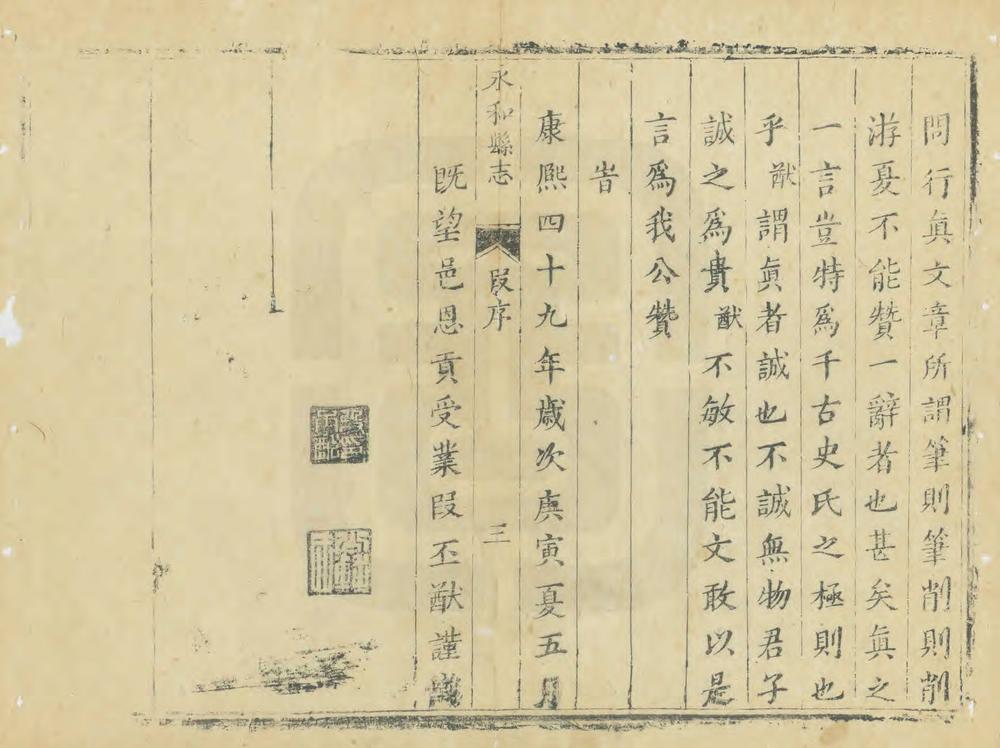 問行眞文章所謂筆則筆削則削
游夏不能贊一辭者也甚矣眞之
一言豈特爲千古史氏之極則也
乎猷謂眞者誠也不誠無物君子
誠之爲貴猷不敏不能文敢以是
言爲我公贊
旹
康熈四十九年歳次庚寅夏五月
永和縣志
段序
三
既望邑恩貢受業段丕猷謹